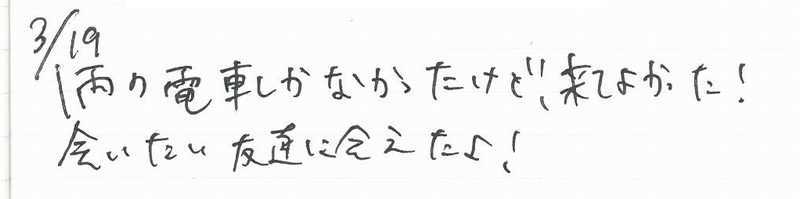 3/19
1両の電車しかなかったけど、来てよかった！
会いたい友達に会えたよ！